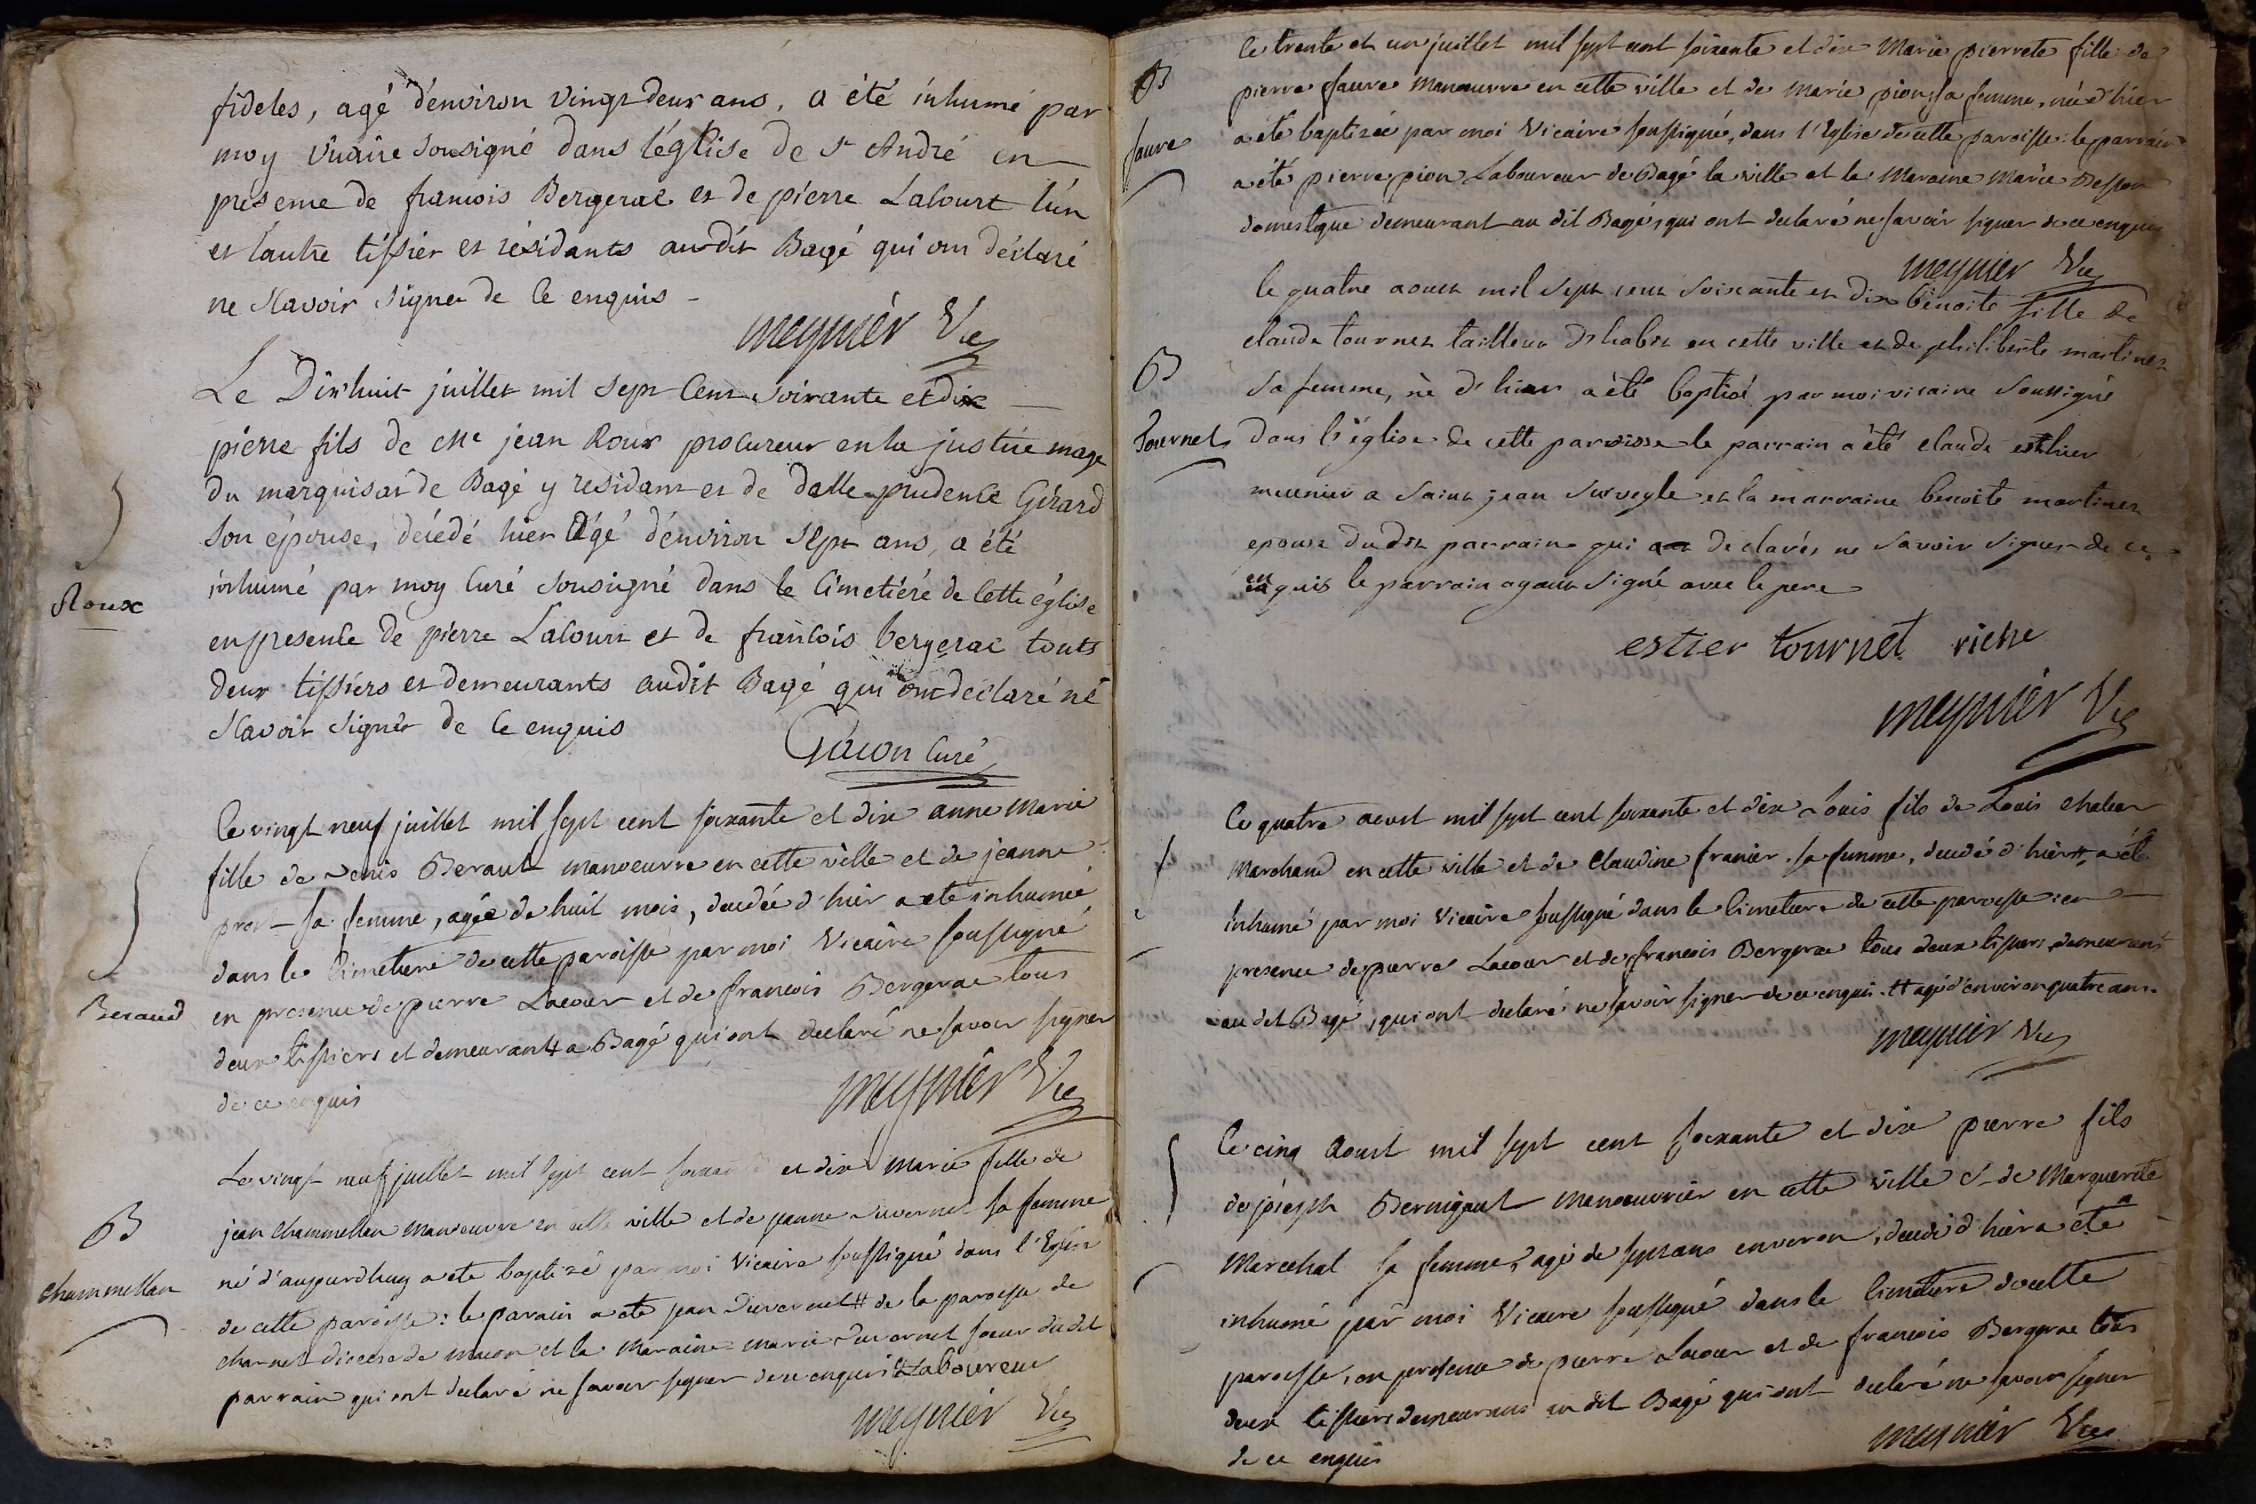 fideles, agé d'environ vingt deux ans, a été inhumé par
moy vicaire sousigné dans léglise de St André en
présence de francois Bergerac et de pierre Lacourt l'un
et lautre tissier et résidants audit Bagé qui ont déclaré
ne Scavoir signer de ce enquis
meynier Vic
Le Dixhuit juillet mil sept cent soixante et dix
pierre fils de me jean Roux procureur en la justice mage
du marquisat de Bagé y residant et de dlle prudence Girard
son épouse, décédé hier agé d'environ sept ans, a été
inhumé par moy curé sousigné dans le cimetiére de cette église
en presence de pierre Lacourt et de francois bergerac touts
deux tissiers et demeurants audit Bagé qui ont declaré ne
scavoir signer de ce enquis
Roux
Gacon curé
Le vingt neuf juillet mil sept cent soixante et dix anne Marie
fille de denis Beraut manoeuvre en cette ville et de jeanne
prost sa femme, agée de huit mois, decédée d'hier a ete inhumée
dans le cimetiere de cette paroisse par moi Vicaire soussigné
en presence de pierre Lacour et de francois Bergerac tous
Beraud
deux tissiers et demeurant a Bagé qui ont declaré ne savoir signer
de ce enquis
meynier Vic
Le vingt neuf juillet mil sept cent soixante et dix marie fille de
B
jean chammellan manoeuvre en cette ville et de jeanne duvernet sa femme
né d'aujourdhuy a ete baptizé par moi Vicaire soussigné dans l'Eglise
chammellan
de cette paroisse : le parain a ete jean duvernet # de la paroisse de
charnet diocese de macon et la Maraine marie duvernet soeur du dit
parrain qui ont declaré ne savoir signer de ce enquis # Laboureur
meynier Vic
Le trente et un juillet mil sept cent soixante et dix Marie pierrete fille de
B
pierre faure Manoeuvre en cette ville et de Marie pion sa femme, née d'hier
faure
a été baptizée par moi Vicaire soussigné, dans l'Eglise de cette paroisse : le parrain
a été pierre pion Laboureur de Bagé la ville et la Maraine Marie Besson
domestique demeurant au dit Bagé, qui ont declaré ne savoir signer de ce enquis
meynier Vic
le quatre aoust mil sept cent soixante et dix benoite fille de
claude tournet tailleur d'habit en cette ville et de philiberte martinet
B
sa femme, né d'hier a été baptisé par moi vicaire soussigné
Tournet
dans l'église de cette paroisse le parrain a été claude esthier
meunier a saint jean sur veyle et la marraine benoite martinet
epouse dudit parrain qui declarés ne savoir signer de ce
enquis le parrain ayant signé avec le pere
estier tournet riche
meynier Vic
Le quatre aoust mil sept cent soixante et dix Louis fils de Louis
Marchand en cette ville et de Claudine franier sa femme, decédé d'hier #, a été
inhumé par moi Vicaire soussigné dans le cimetiere de cette paroisse : en
presence de pierre Lacour et de francois Bergerac tous deux tissiers demeurant
au dit Bagé, qui ont declaré ne savoir signer de ce enquis. # agé d'environ quatre ans.
meynier Vic
Le cinq Aoust mil sept cent soixante et dix pierre fils
de joseph Bernigaut Manoeuvrier en cette ville et de Marguerite
Marechal sa femme, agé de sept ans environ, decédé d'hier a été
inhumé par moi Vicaire soussigné dans le cimetiere de cette
paroisse, en presence de pierre Lacour et de francois Bergerac tous
deux tissiers demeurans au dit Bagé qui ont declaré ne savoir signer
de ce enquis
meynier Vic